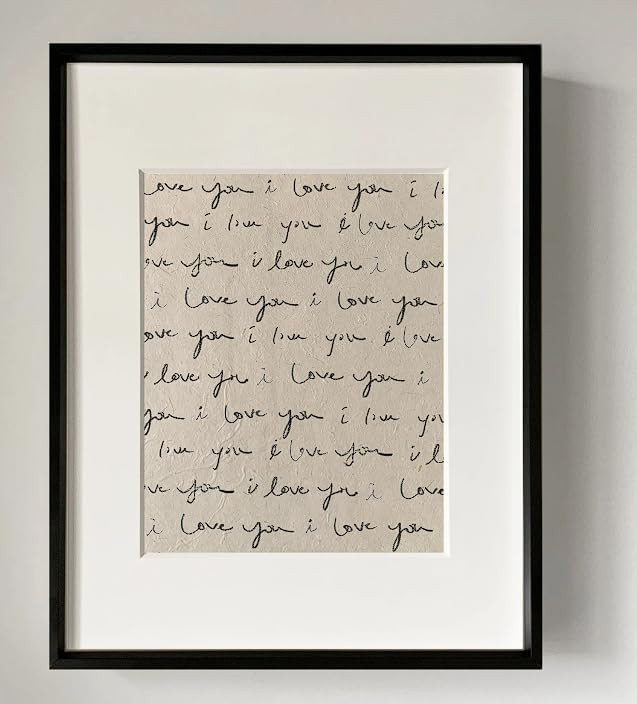 ove you i love you i l
you i love you i love you
ove you i love you i love
i love you i love you
ove you i love you i love
love you i love you i
you i love you i love you
love you i love you i l
ove you i love you i love
i love you i love you